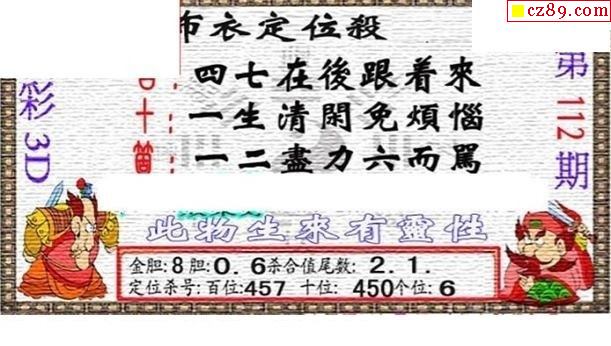 cz89.com
布衣定位殺
四七在後跟着來
一生清閑免煩惱
一二盡力六而罵
彩3D
第112期
此物生來有靈性
金胆:8胆:0.6杀合值尾数:2.1.
定位杀号:百位:457 十位:450个位:6